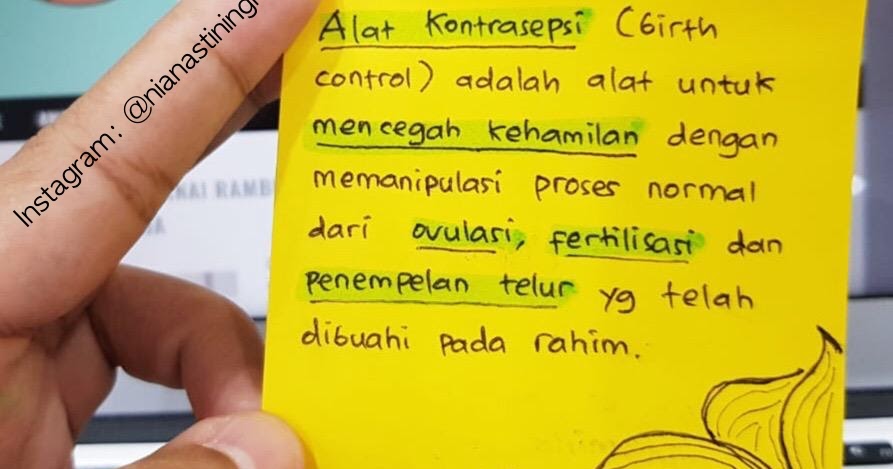 Instagram: @nianastiningr
Alat Kontrasepsi (Birth
control) adalah alat untuk
mencegah kehamilan dengan
memanipulasi proses normal
dari ovulasi, fertilisasi dan
penempelan telur yg telah
dibuahi pada rahim.